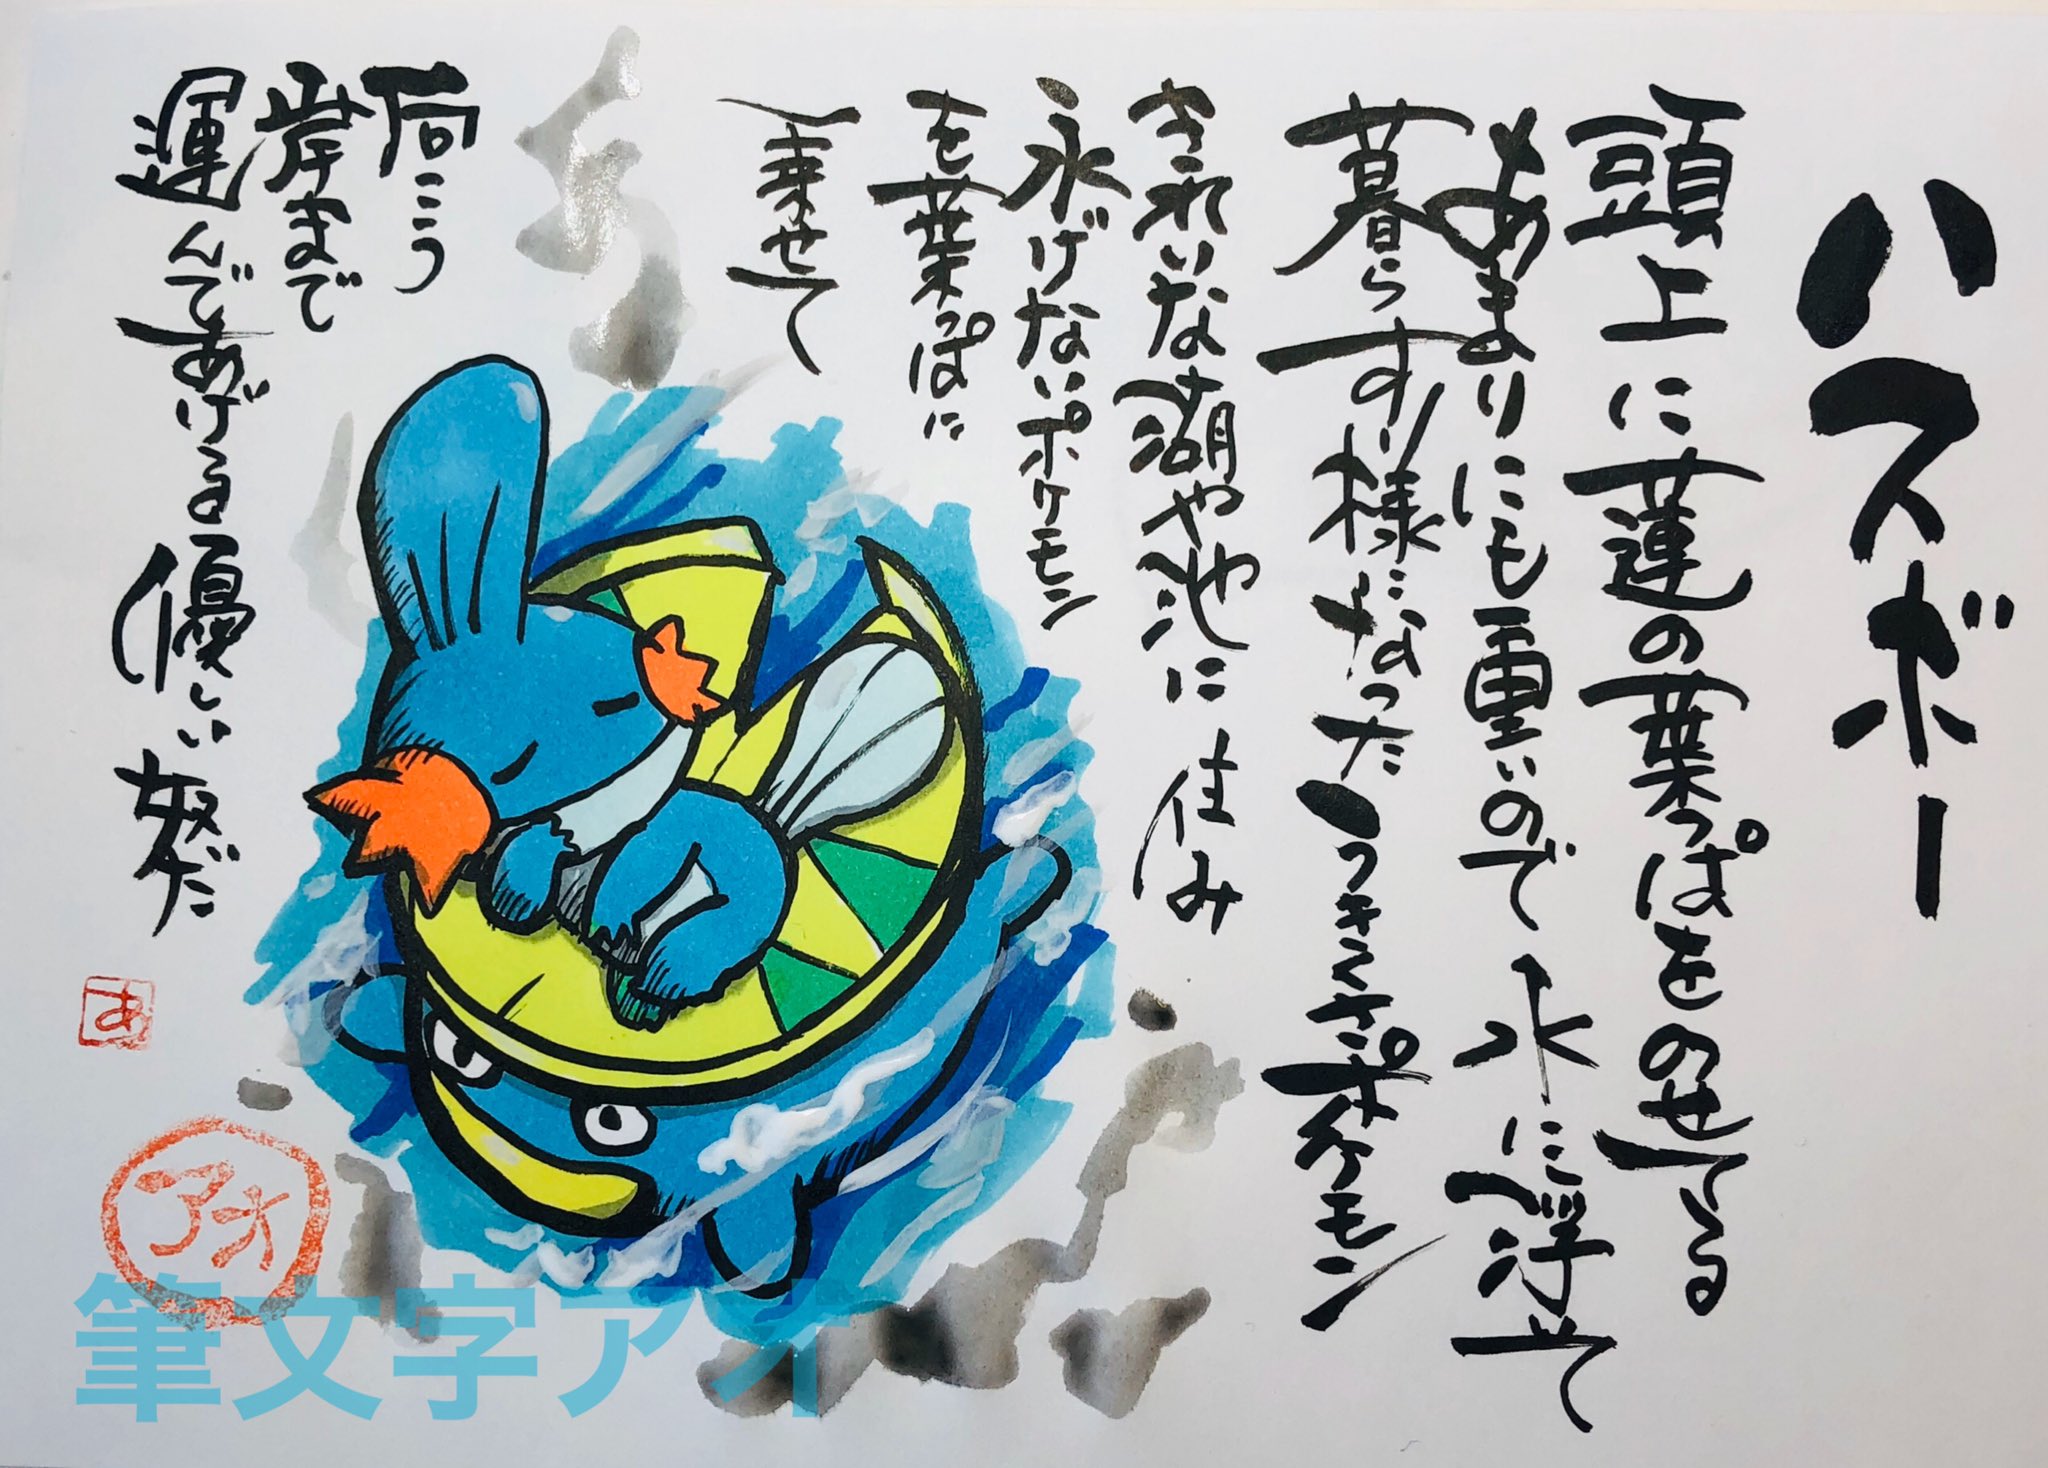 ハスボー
頭上に蓮の葉っぱをのせてる
もあまりにも重いので水に浮いて
暮らす様になったうきくさポケモン
きれいな湖や池に住み
泳げないポケモン
を葉っぱに
乗せて
向こう
岸まで
運んであげる優しい奴だ
あ
アオ
筆文字アオ